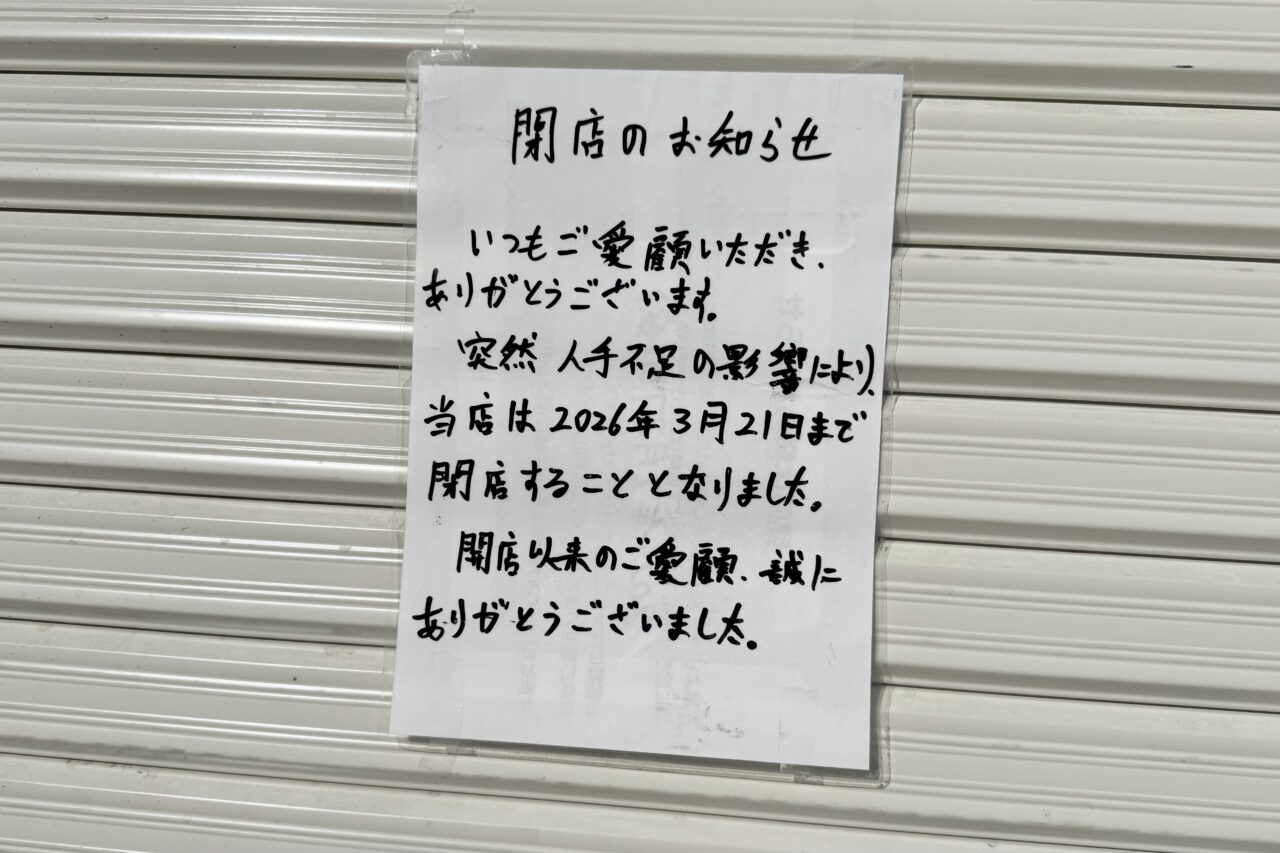 閉店のお知らせ
いつもご愛顧いただき、
ありがとうございます。
突然人手不足の影響により、
当店は2026年3月21日まで
閉店することとなりました。
開店以来のご愛顧、誠に
ありがとうございました。